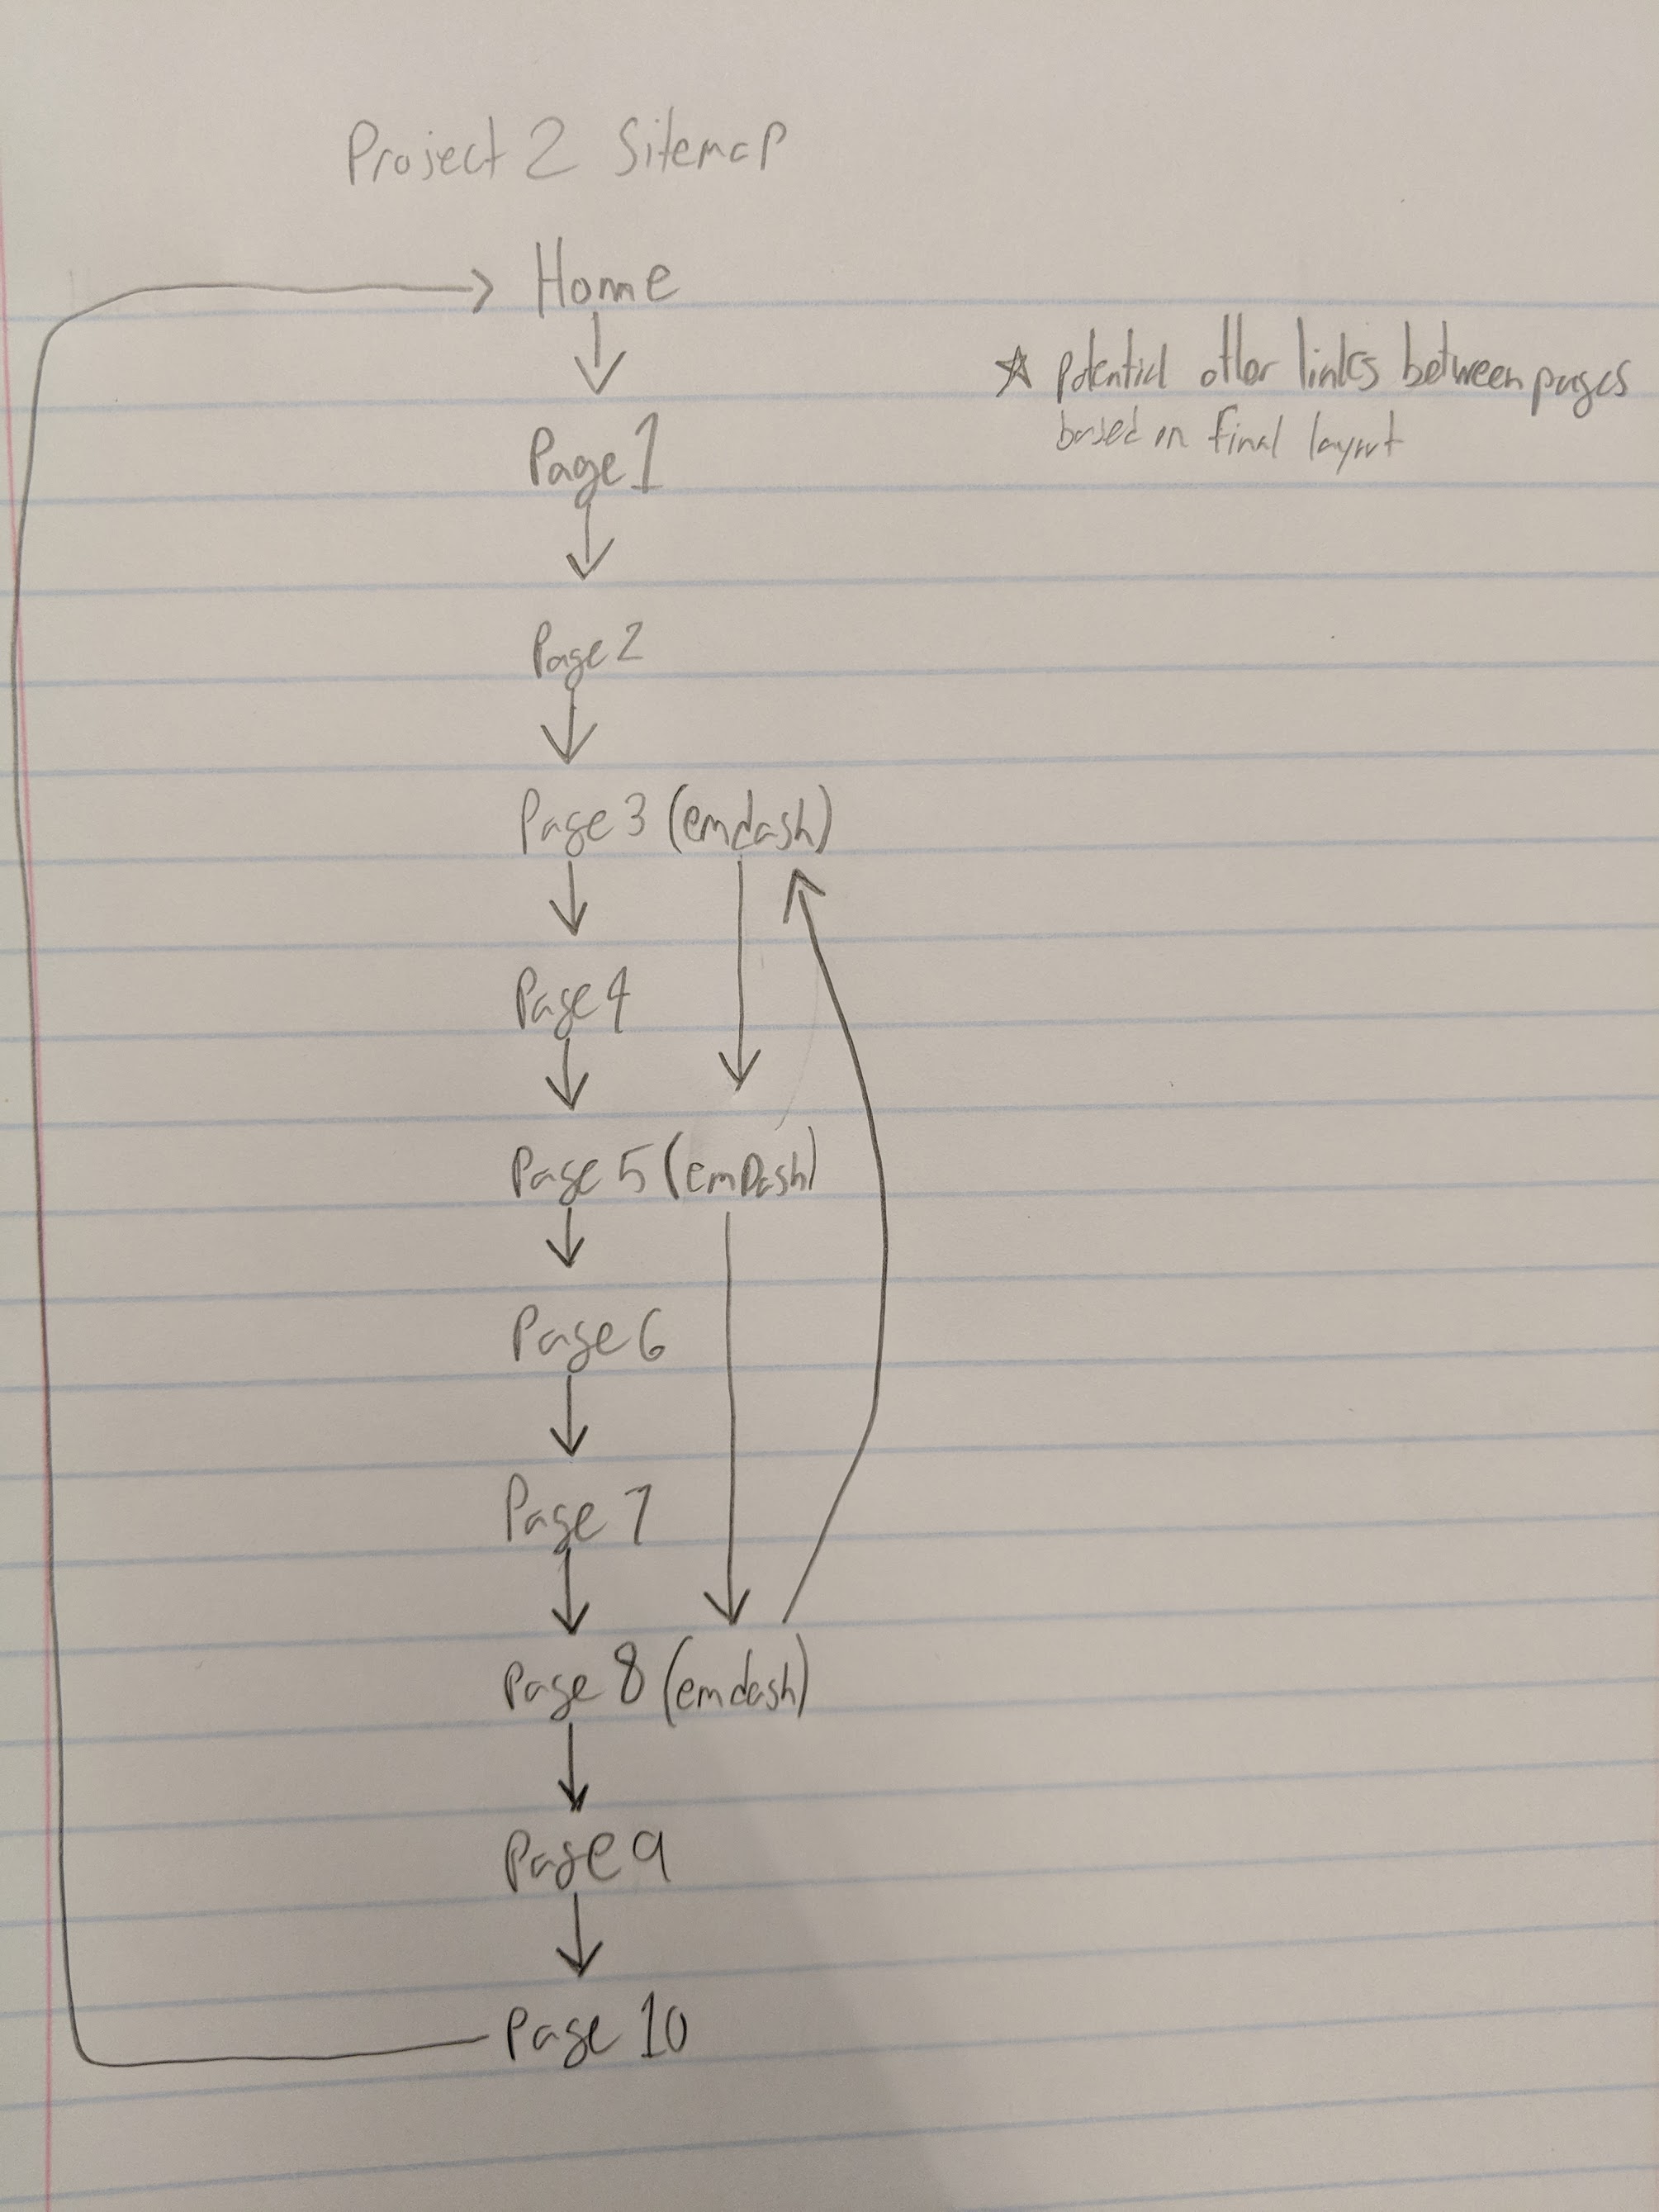 Project 2 Sitemap
Home
☆ potential other links between pages
based on final layout
Page 1
Page 2
Page 3 (emdash)
Page 4
Page 5 (emDash)
Page 6
Page 7
Page 8 (emdash)
Page 9
Page 10